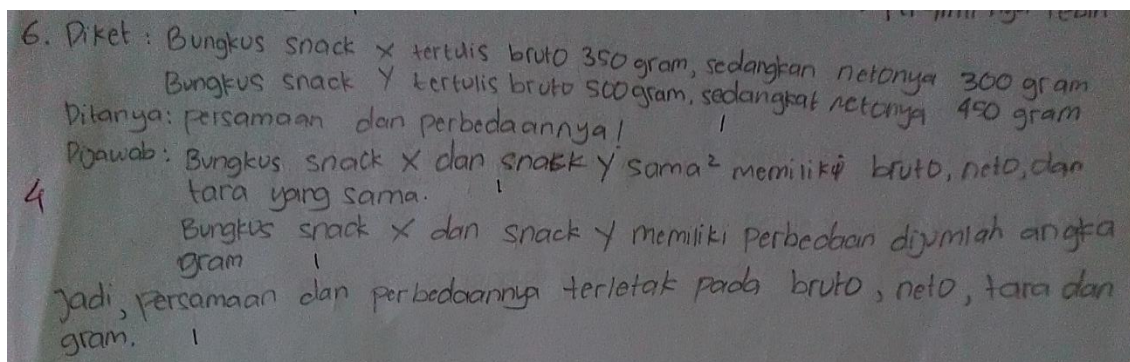 6. Diket : Bungkus snack x tertulis bruto 350 gram, sedangkan netonya 300 gram
Bungkus snack Y tertulis bruto 500 gram, sedangkat netonya 450 gram
Ditanya : persamaan dan perbedaannya! 1
Dijawab : Bungkus snack x dan snack y sama² memiliki bruto, neto, dan
4 tara yang sama. 1
Bungkus snack x dan snack y memiliki perbedaan dijumlah angka
gram 1
Jadi, persamaan dan perbedaannya terletak pada bruto, neto, tara dan
gram. 1